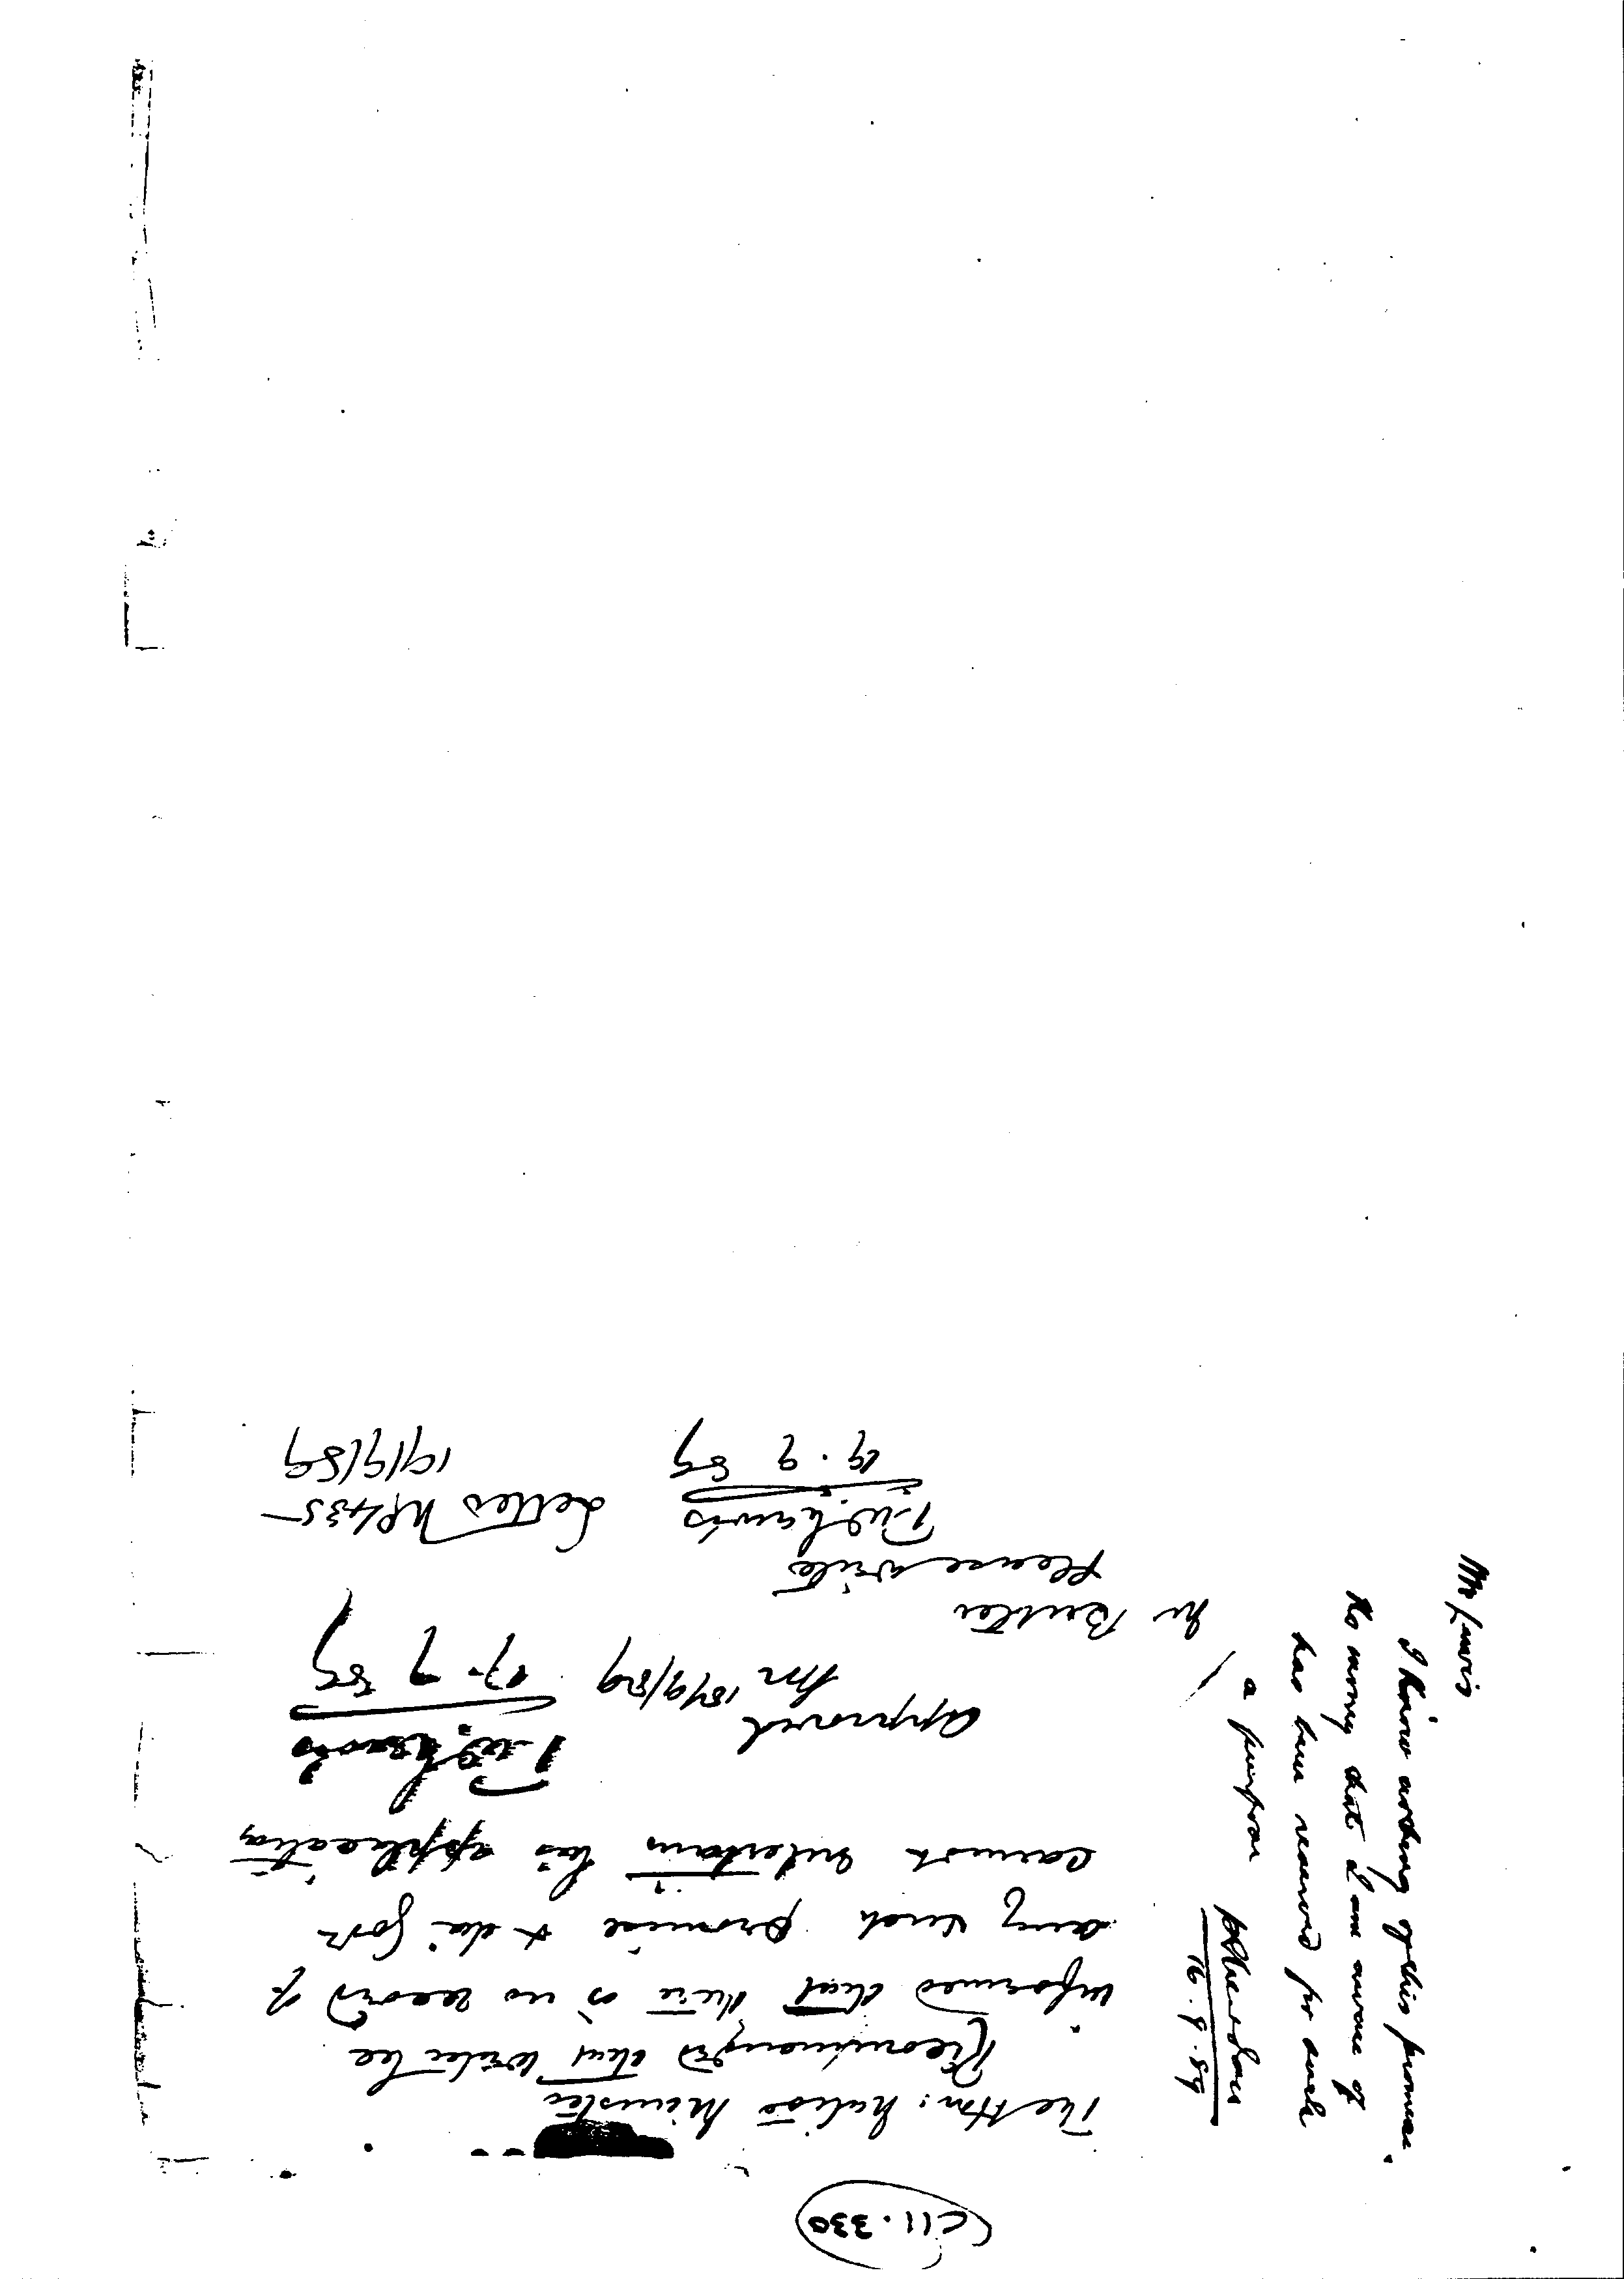 C11.330
Mr Lewis
I know nothing of this promise.
No money that I am aware of
has been reserved for such
a purpose
16.9.89
The Hon: Native Minister
Recommended that writer be
informed that there is no record of
any such promise & the Govt
cannot entertain his application
T.W. Lewis
17.9.89
Approved
18/9/89
Mr Butler
Please write
T.W. Lewis
19.9.89
Letter No 435
19/9/89